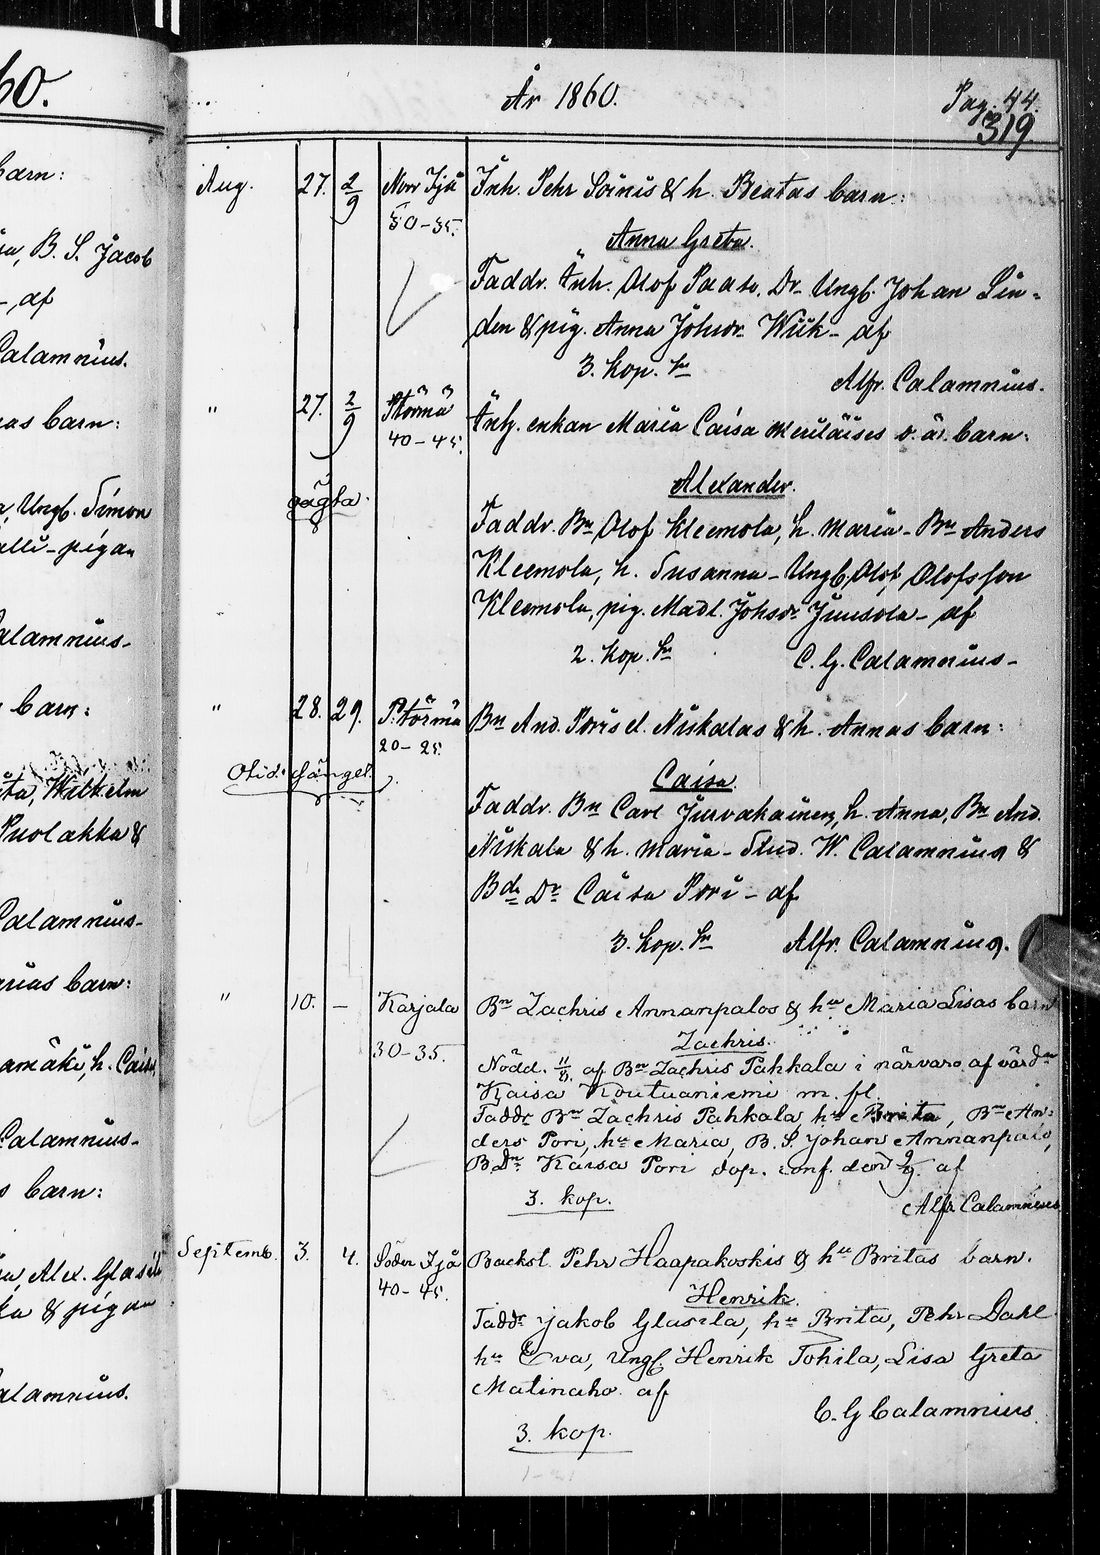 60.
År 1860.
Pag. 44.
319.
barn:
B. S. Jacob
- af
Calamnius.
barn:
Ungb. Simon
pigan
Calamnius-
barn:
Wilhelm
Puolakka &
Calamnius-
barn:
h. Caisa
Calamnius-
barn:
Alex. Glasila
& pigan
Calamnius.
Aug. 27. 2/9 Norr Ijå Inh. Pehr Soinis & h. Beatas barn:
30-35.
Anna Greta.
Faddr. Inh. Olof Paaso, Dr. Ungb. Johan Lin=
den & pig. Anna Johsdr. Wiik- af
3. kop. Sn
Alfr. Calamnius.
" 27. 2/9 P. törmä Inh. enkan Maria Caisa Meriläises o. ä. barn:
40-45.
oägta.
Alexander.
Faddr. Bn Olof Kleemola, h. Maria- Bn Anders
Kleemola, h. Susanna- Ungb. Olof Olofsson
Kleemola, pig. Madl. Johsdr Juusola- af
2. kop. Sn C. G. Calamnius-
" 28. 29. P. törmä Bn And. Poris el. Niskalas & h. Annas barn:
20-25.
Otid. sängel.
Caisa
Faddr. Bn Carl Jurvakainen, h. Anna, Bn And.
Niskala & h. Maria- Stud. W. Calamnius &
Bds Dr Caisa Pori- af
3. kop. Sn Alfr. Calamnius.
" 10. - Karjala Bn Zachris Annanpalos & hu Maria Lisas barn
30-35.
Zachris.
Nödd. 11/8. af Bn Zachris Pahkala i närvaro af värdn
Kaisa Koutuaniemi m. fl.
Faddr Bn Zachris Pahkala, hu Brita, Bn An=
ders Pori, hu Maria, B. S. Johan Annanpalo,
B Dr Kaisa Pori dop. conf. den 2/9. af
3. kop. Alfr Calamnius
Septemb. 3. 4. Söder Ijå Backst. Pehr Haapakoskis & hu Britas barn.
40-45.
Henrik.
Faddr Jakob Glasila, hu Brita, Pehr Dahl
hu Eva, Ungk. Henrik Tohila, Lisa Greta
Matinaho. af
C. G Calamnius
3. kop.